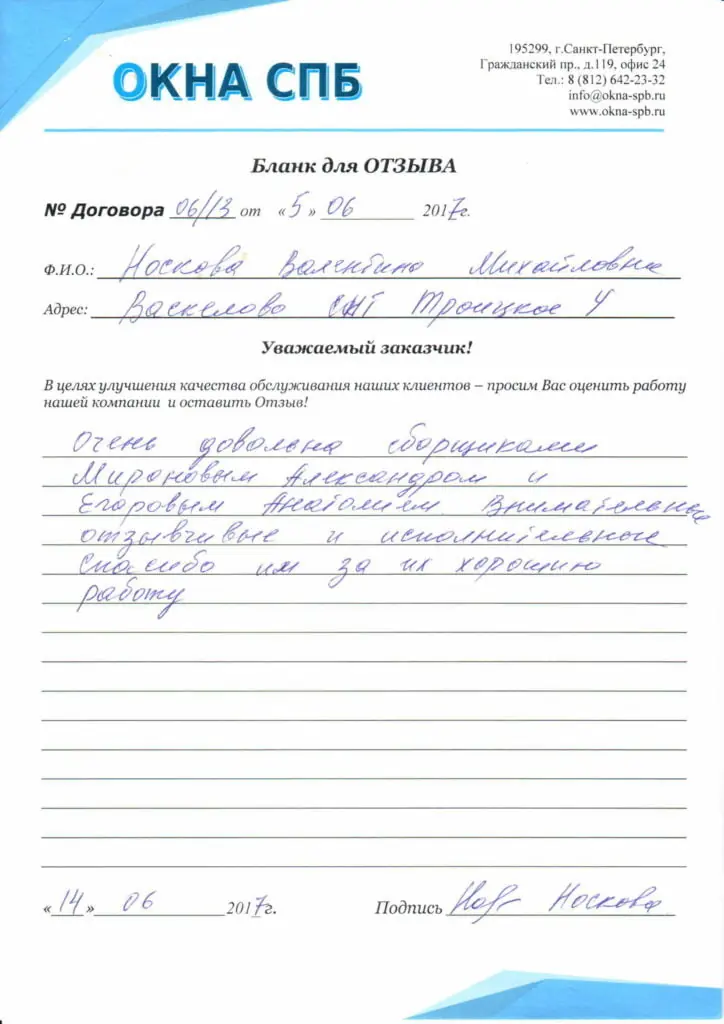 ОКНА СПБ
195299, г.Санкт-Петербург,
Гражданский пр., д.119, офис 24
Тел.: 8 (812) 642-23-32
info@okna-spb.ru
www.okna-spb.ru
Бланк для ОТЗЫВА
№ Договора 06/13 от «5» 06 2017г.
Ф.И.О.: Носкова Валентина Михайловна
Адрес: Васкелово СНТ Троицкое 4
Уважаемый заказчик!
В целях улучшения качества обслуживания наших клиентов – просим Вас оценить работу
нашей компании и оставить Отзыв!
Очень довольна сборщиками
Мироновым Александром и
Егаровым Анатолием. Внимательные
отзывчивые и исполнительные
Спасибо им за их хорошую
работу
«14» 06 2017г.
Подпись Нос Носкова